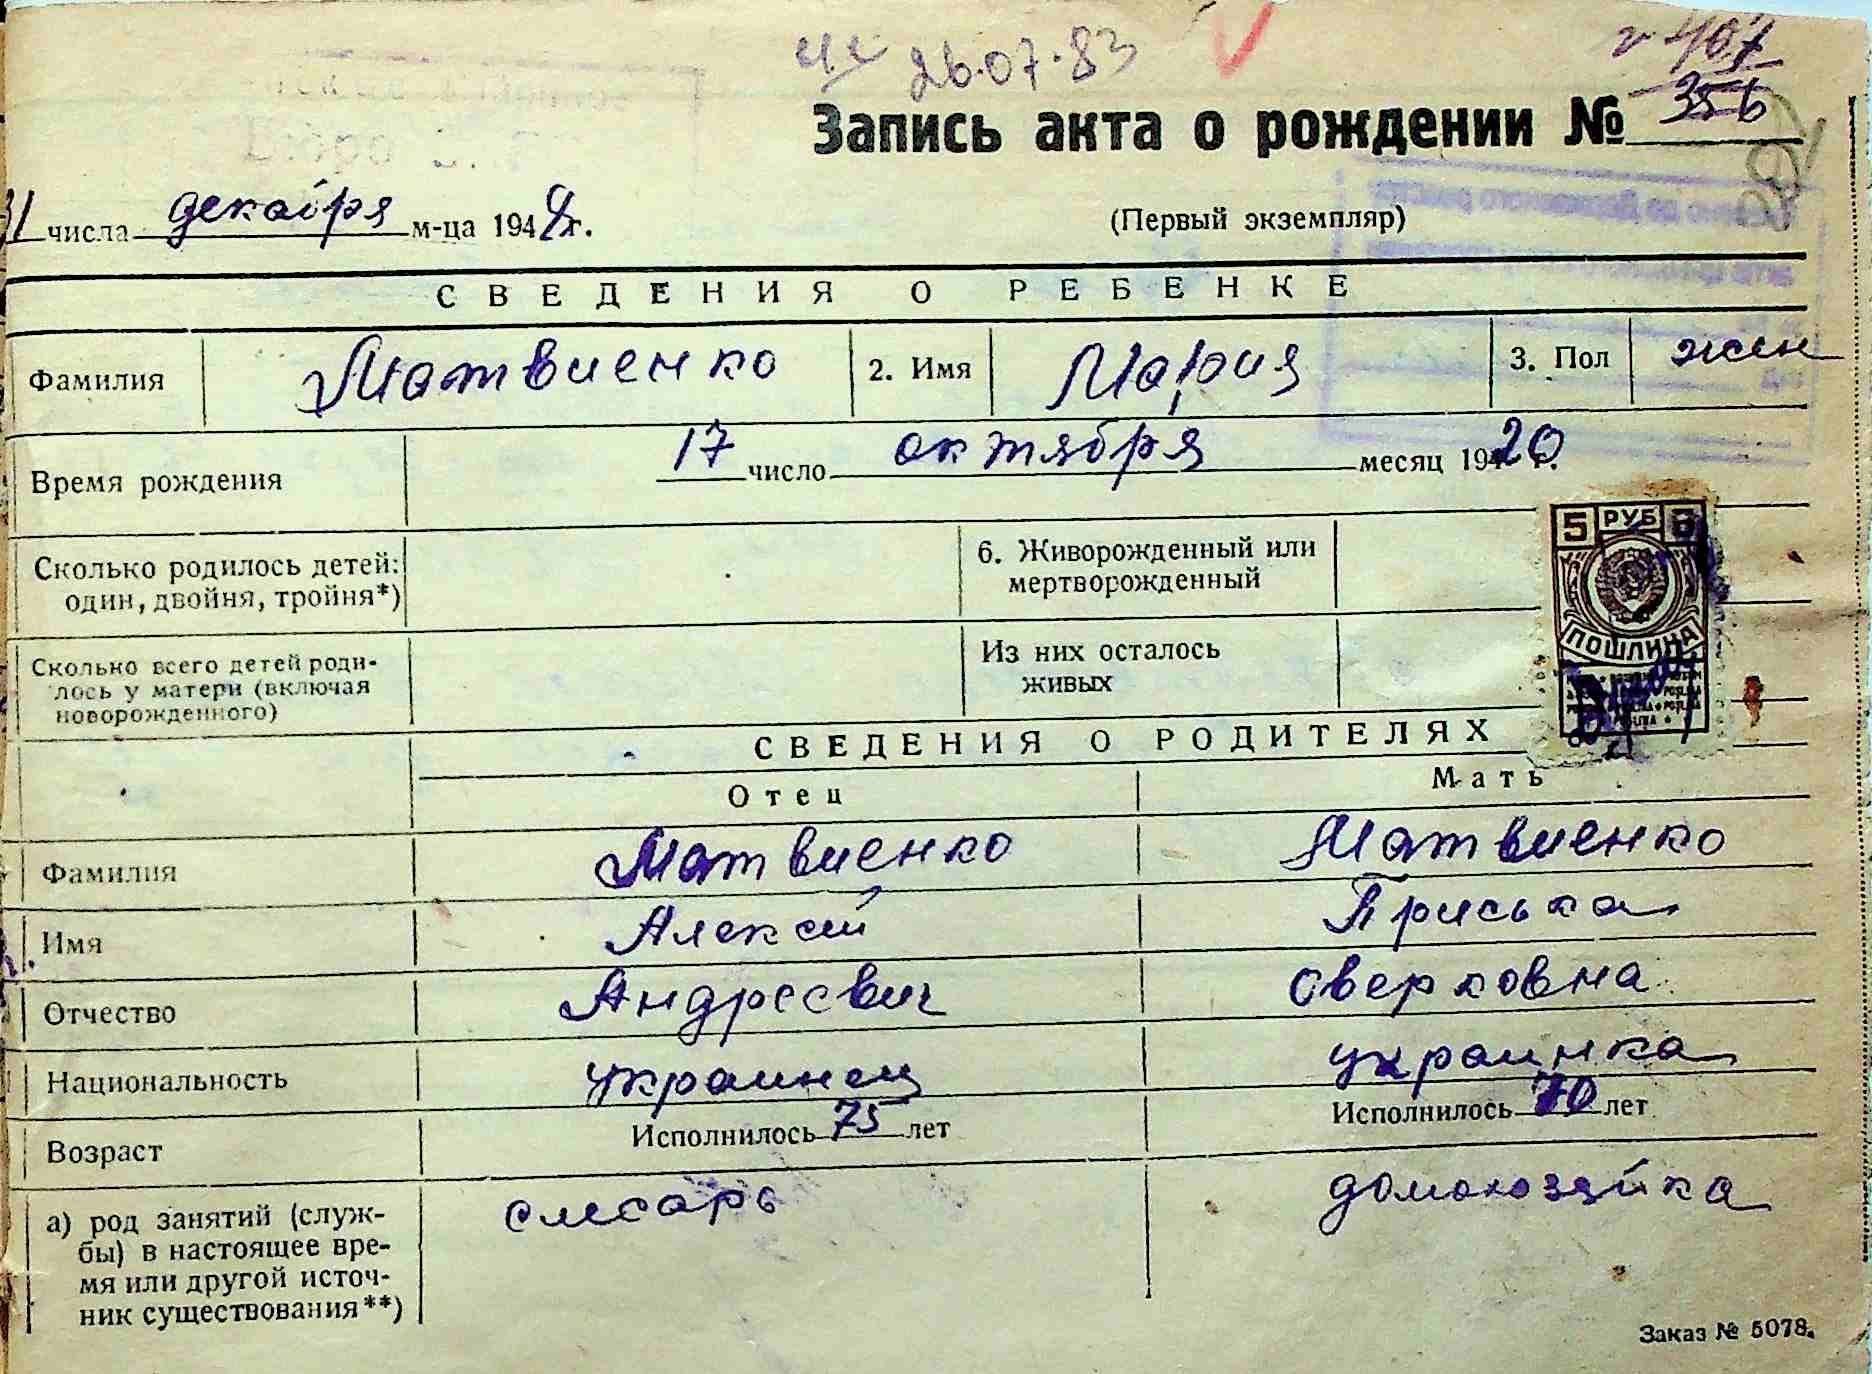 26.07.83
407
Запись акта о рождении № 356
31 числа декабря м-ца 1944 г.
(Первый экземпляр)
СВЕДЕНИЯ О РЕБЕНКЕ
Фамилия Матвиенко 2. Имя Мария 3. Пол жен
Время рождения 17 число октября месяц 1920 г.
Сколько родилось детей: 6. Живорожденный или
один, двойня, тройня*) мертворожденный
5 РУБ 5
ПОШЛИНА
Сколько всего детей роди- Из них осталось
лось у матери (включая живых
новорожденного)
СВЕДЕНИЯ О РОДИТЕЛЯХ
Отец Мать
Фамилия Матвиенко Матвиенко
Имя Алексей Приська
Отчество Андреевич Оверковна
Национальность украинец украинка
Возраст Исполнилось 75 лет Исполнилось 70 лет
а) род занятий (служ- слесарь домохозяйка
бы) в настоящее вре-
мя или другой источ-
ник существования**)
Заказ № 5078.